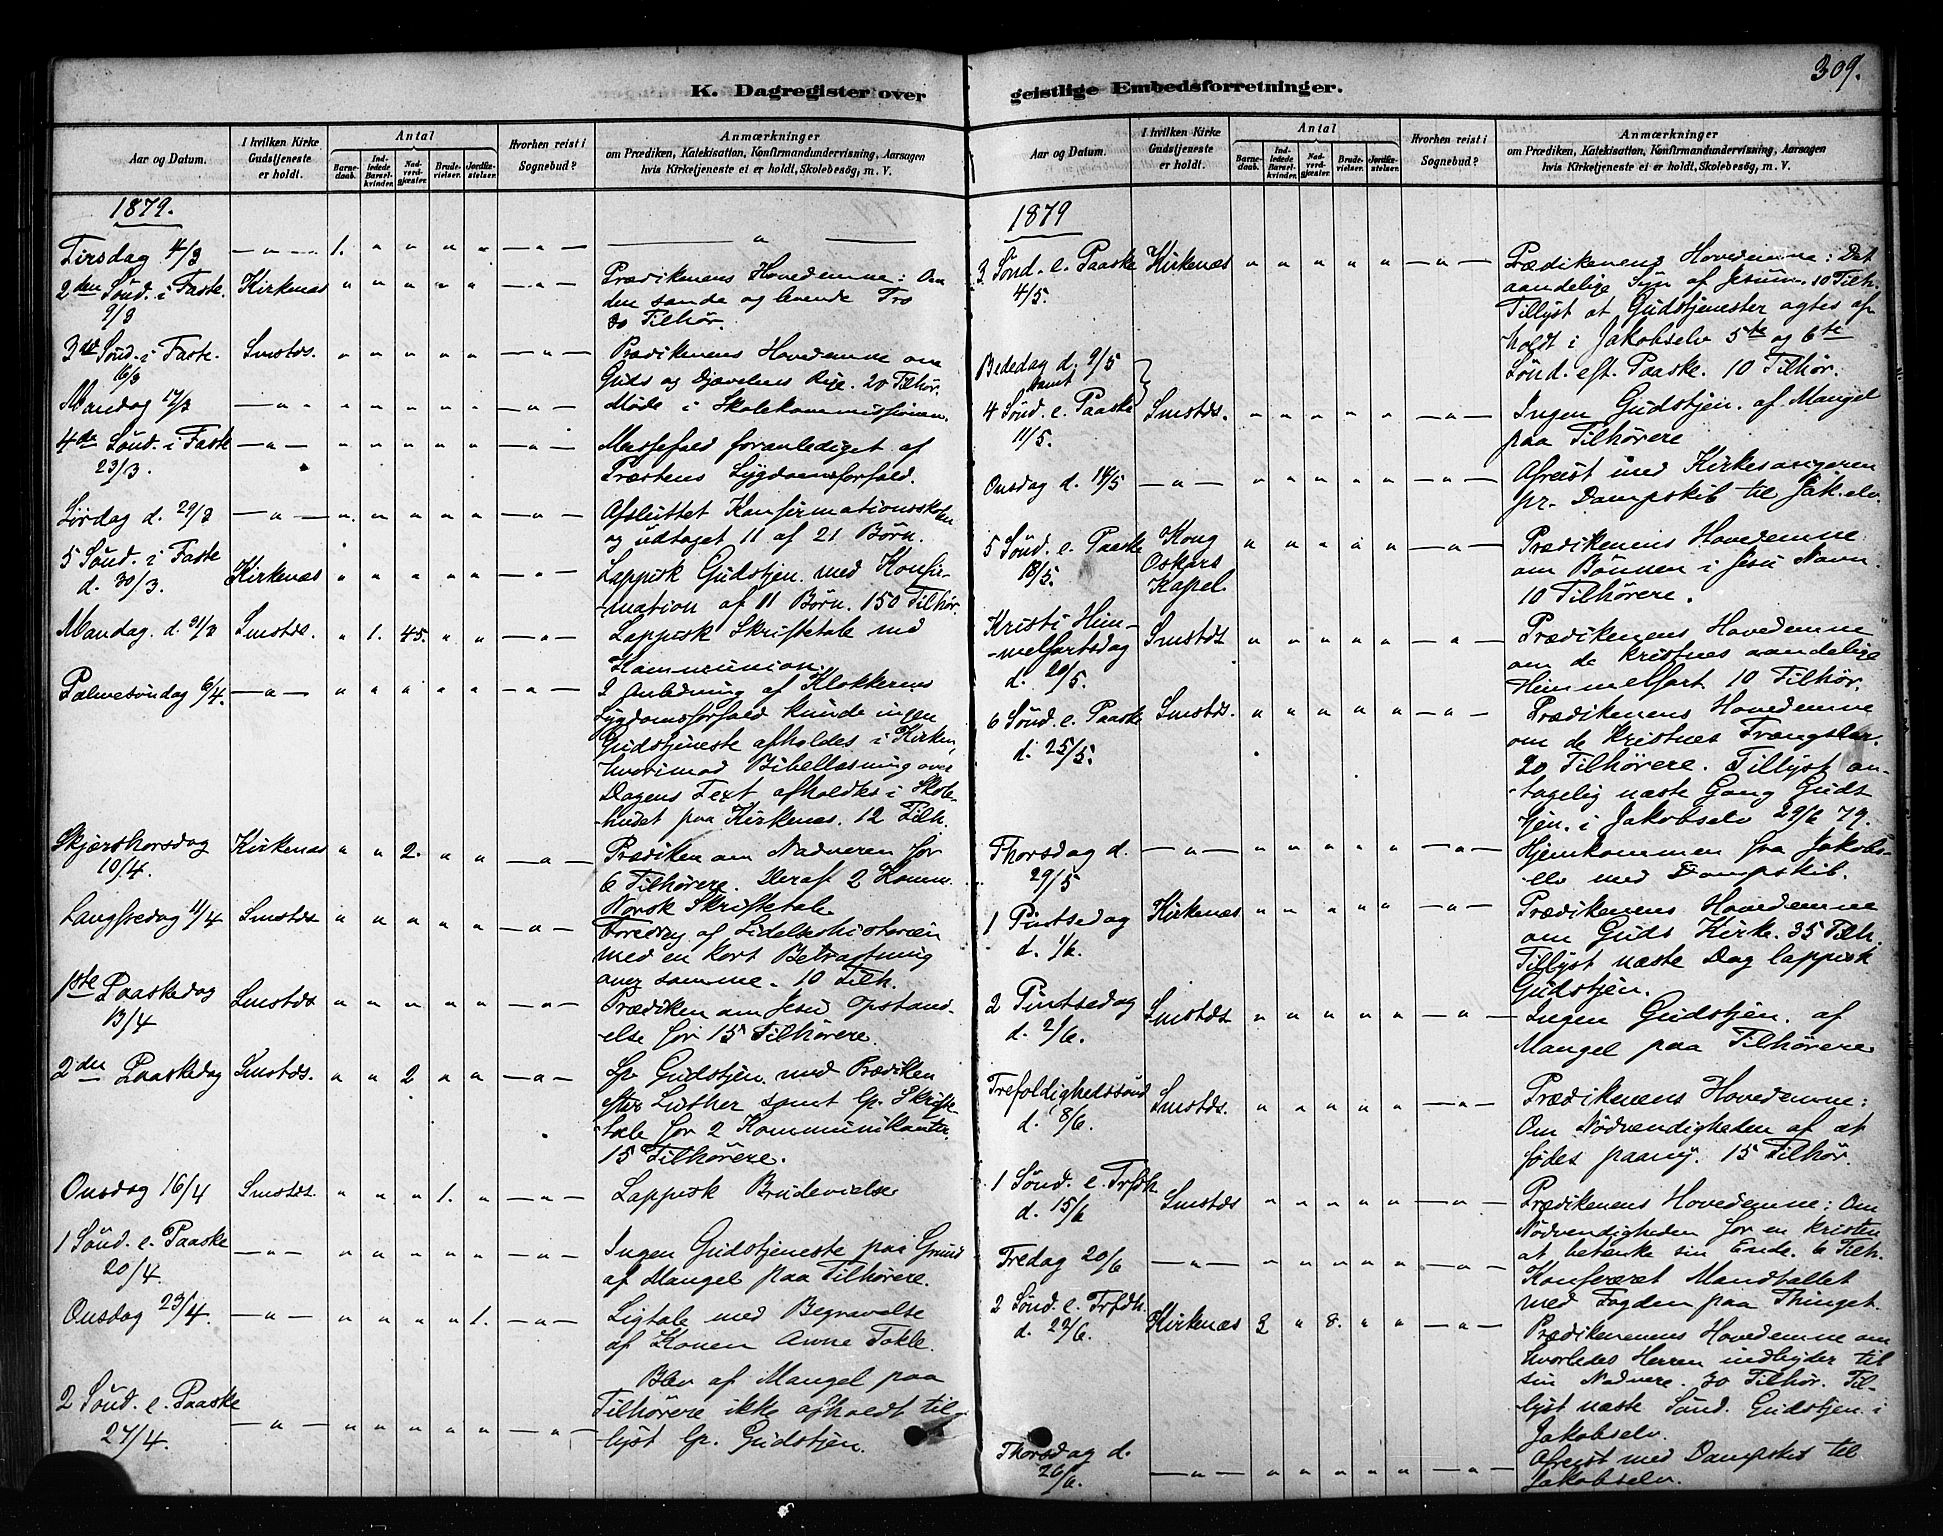 K. Dagregister over
Aar og Datum.
I hvilken Kirke Gudstjeneste er holdt.
Antal
Barne-daab.
Ind-ledede Barsel-kvinder.
Nad-verd-gjæster.
Brude-vielser.
Jordfæ-stelser.
Hvorhen reist i Sognebud?
Anmærkninger
om Prædiken, Katekisation, Konfirmandundervisning, Aarsagen
hvis Kirketjeneste ei er holdt, Skolebesøg, m. V.
1879.
Tirsdag 4/3 — „ — 1. „ „ „ „ — „ — — „ —
2den Sönd. i Faste. 9/3 Kirkenæs „ „ „ „ „ — „ — Prædikenens Hovedemne: Om
den sande og levende Tro
30 Tilhør.
3die Sönd. i Faste. 16/3 Smstds. „ „ „ „ „ — „ — Prædikenens Hovedemne om
Guds og Djævelens Rige. 20 Tilhør.
Mandag 17/3 — „ — „ „ „ „ „ — „ — Møde i Skolekommissionen.
4de Sönd. i Faste 23/3. — „ — „ „ „ „ „ — „ — Messefald foranlediget af
Præstens Sygdomsforfald.
Lördag d. 29/3 — „ — „ „ „ „ „ — „ — Afsluttet Konfirmationsskolen
og udtaget 11 af 21 Börn.
5 Sönd. i Faste d. 30/3. Kirkenæs „ „ „ „ „ — „ — Lappisk Gudstjen. med Konfir-
-mation af 11 Börn. 150 Tilhør.
Mandag. d. 31/3 Smstds. „ 1. 45. „ „ — „ — Lappisk Skriftetale med
Kommunion.
Palmesöndag 6/4. — „ — „ „ „ „ „ — „ — I Anledning af Klokkerens
Sygdomsforfald kunde ingen
Gudstjeneste afholdes i Kirken,
hvorimod Bibellæsning over
Dagens Text afholdtes i Skole-
huset paa Kirkenæs. 12 Tilh.
Skjærthorsdag 10/4. Kirkenæs „ „ 2. „ „ — „ — Prædiken om Nadveren for
6 Tilhørere. Deraf 2 Komm.
Norsk Skriftetale
Langfredag 11/4 Smstds „ „ „ „ „ — „ — Foredrag af Lidelseshistorien
med en kort Betragtning
over samme. 10 Tilh.
1ste Paaskedag 13/4 Smstds „ „ „ „ „ — „ — Prædiken om Jesu Opstand-
else for 15 Tilhörere.
2den Paaskedag Smstds. „ „ 2 „ „ — „ — Lp. Gudstjen. med Prædiken
efter Luther samt lp. Skrifte-
tale for 2 Kommunikanter.
15 Tilhörere.
Onsdag 16/4 Smstds. „ „ „ 1. „ — „ — Lappisk Brudevielse
1 Sönd. e. Paaske 20/4. — „ — „ „ „ „ „ — „ — Ingen Gudstjeneste paa Grund
af Mangel paa Tilhørere.
Onsdag 23/4 — „ — „ „ „ „ 1. — „ — Ligtale med Begravelse
af Konen Anne Takle.
2 Sönd. e. Paaske 27/4. — „ — „ „ „ „ „ — „ — Blev af Mangel paa
Tilhörere ikke afholdt til-
lyst lp. Gudstjen.
309.
geistlige Embedsforretninger.
Aar og Datum.
I hvilken Kirke Gudstjeneste er holdt.
Antal
Barne-daab.
Ind-ledede Barsel-kvinder.
Nad-verd-gjæster.
Brude-vielser.
Jordfæ-stelser.
Hvorhen reist i Sognebud?
Anmærkninger
om Prædiken, Katekisation, Konfirmandundervisning, Aarsagen
hvis Kirketjeneste ei er holdt, Skolebesög, m. V.
1879
3 Sönd. e. Paaske 4/5. Kirkenæs „ „ „ „ „ — „ — Prædikenens Hovedemne: Det
aandelige Syn af Jesum. 10 Tilh.
Tillyst at Gudstjenester agtes af-
holdt i Jakobselv 5te og 6te
Sönd. eft. Paaske. 10 Tilhør.
Bededag d. 9/5 samt
4 Sönd. e. Paaske 11/5. Smstds. „ „ „ „ „ — „ — Ingen Gudstjen. af Mangel
paa Tilhørere
Onsdag d. 14/5 — „ — „ „ „ „ „ — „ — Afreist med Kirkesangeren
pr. Dampskib til Jak.elv.
5 Sönd. e. Paaske 18/5. Kong Oskars Kapel. „ „ „ „ „ — „ — Prædikenens Hovedemne
om Bönnen i Jesu Navn
10 Tilhørere.
Kristi Him-
-melfartsdag d. 20/5. Smstds „ „ „ „ „ — „ — Prædikenens Hovedemne
om de kristnes aandelige
Himmelfart 10 Tilhør.
6 Sönd. e. Paaske d. 25/5. Smstds. „ „ „ „ „ — „ — Prædikenens Hovedemne
om de kristnes Trængsler.
20 Tilhörere. Tillyst an-
-tagelig næste Gang Guds
tjen. i Jakobselv 29/6 79.
Thorsdag d. 29/5 — „ — „ „ „ „ „ — „ — Hjemkommen fra Jakobs-
elv med Dampskib.
1 Pintsedag d. 1/6. Kirkenæs „ „ „ „ „ — „ — Prædikenens Hovedemne
om Guds Kirke. 35 Tilh.
Tillyst næste Dag lappisk
Gudstjen.
2 Pintsedag d. 2/6. Smstds „ „ „ „ „ — „ — Ingen Gudstjen. af
Mangel paa Tilhørere
Trefoldighedssönd. d. 8/6. Smstds. „ „ „ „ „ — „ — Prædikenens Hovedemne:
Om Nödvendigheden af at
fødes paany. 15 Tilhør.
1 Sönd. e. Trfdh. d. 15/6 Smstds „ „ „ „ „ — „ — Prædikenens Hovedemne: Om
Nödvendigheden for en kristen
at betænke sin Ende. 6 Tilh.
Fredag 20/6 — „ — „ „ „ „ „ — „ — Konfereret Mandtallet
med Fogden paa Thinget.
2 Sönd. e. Trfdh. d. 22/6. Kirkenæs 3 „ 8. „ „ — „ — Prædikenenens Hovedemne om
hvorledes Herren indbyder til
sin Nadvere. 30 Tilhør. Til-
lyst næste Sönd. Gudstjen. i
Jakobselv.
Thorsdag d. 26/6. — „ — „ „ „ „ „ — „ — Afreist med Dampskib til
Jakobselv.